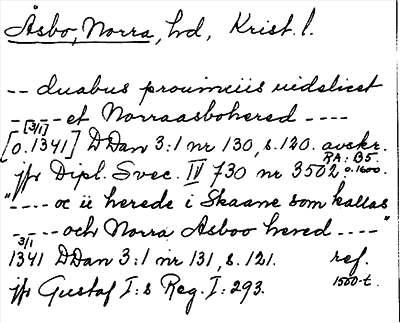 Åsbo, Norra, hd, Krist. l.
-- duabus prouinciis uidelicet
---- et Norraasbohered ----
[3/1]
[o. 1341] DDan 3:1 nr 130, s. 120. avskr.
RA: B5.
jfr Dipl. Svec. IV 730 nr 3502, o. 1600.
"---- oc ii herede i Skaane som kallas
---- och Norra Asboo hered ----"
3/1
1341 DDan 3:1 nr 131, s. 121. ref.
jfr Gustaf I:s Reg. I: 293. 1500-t.